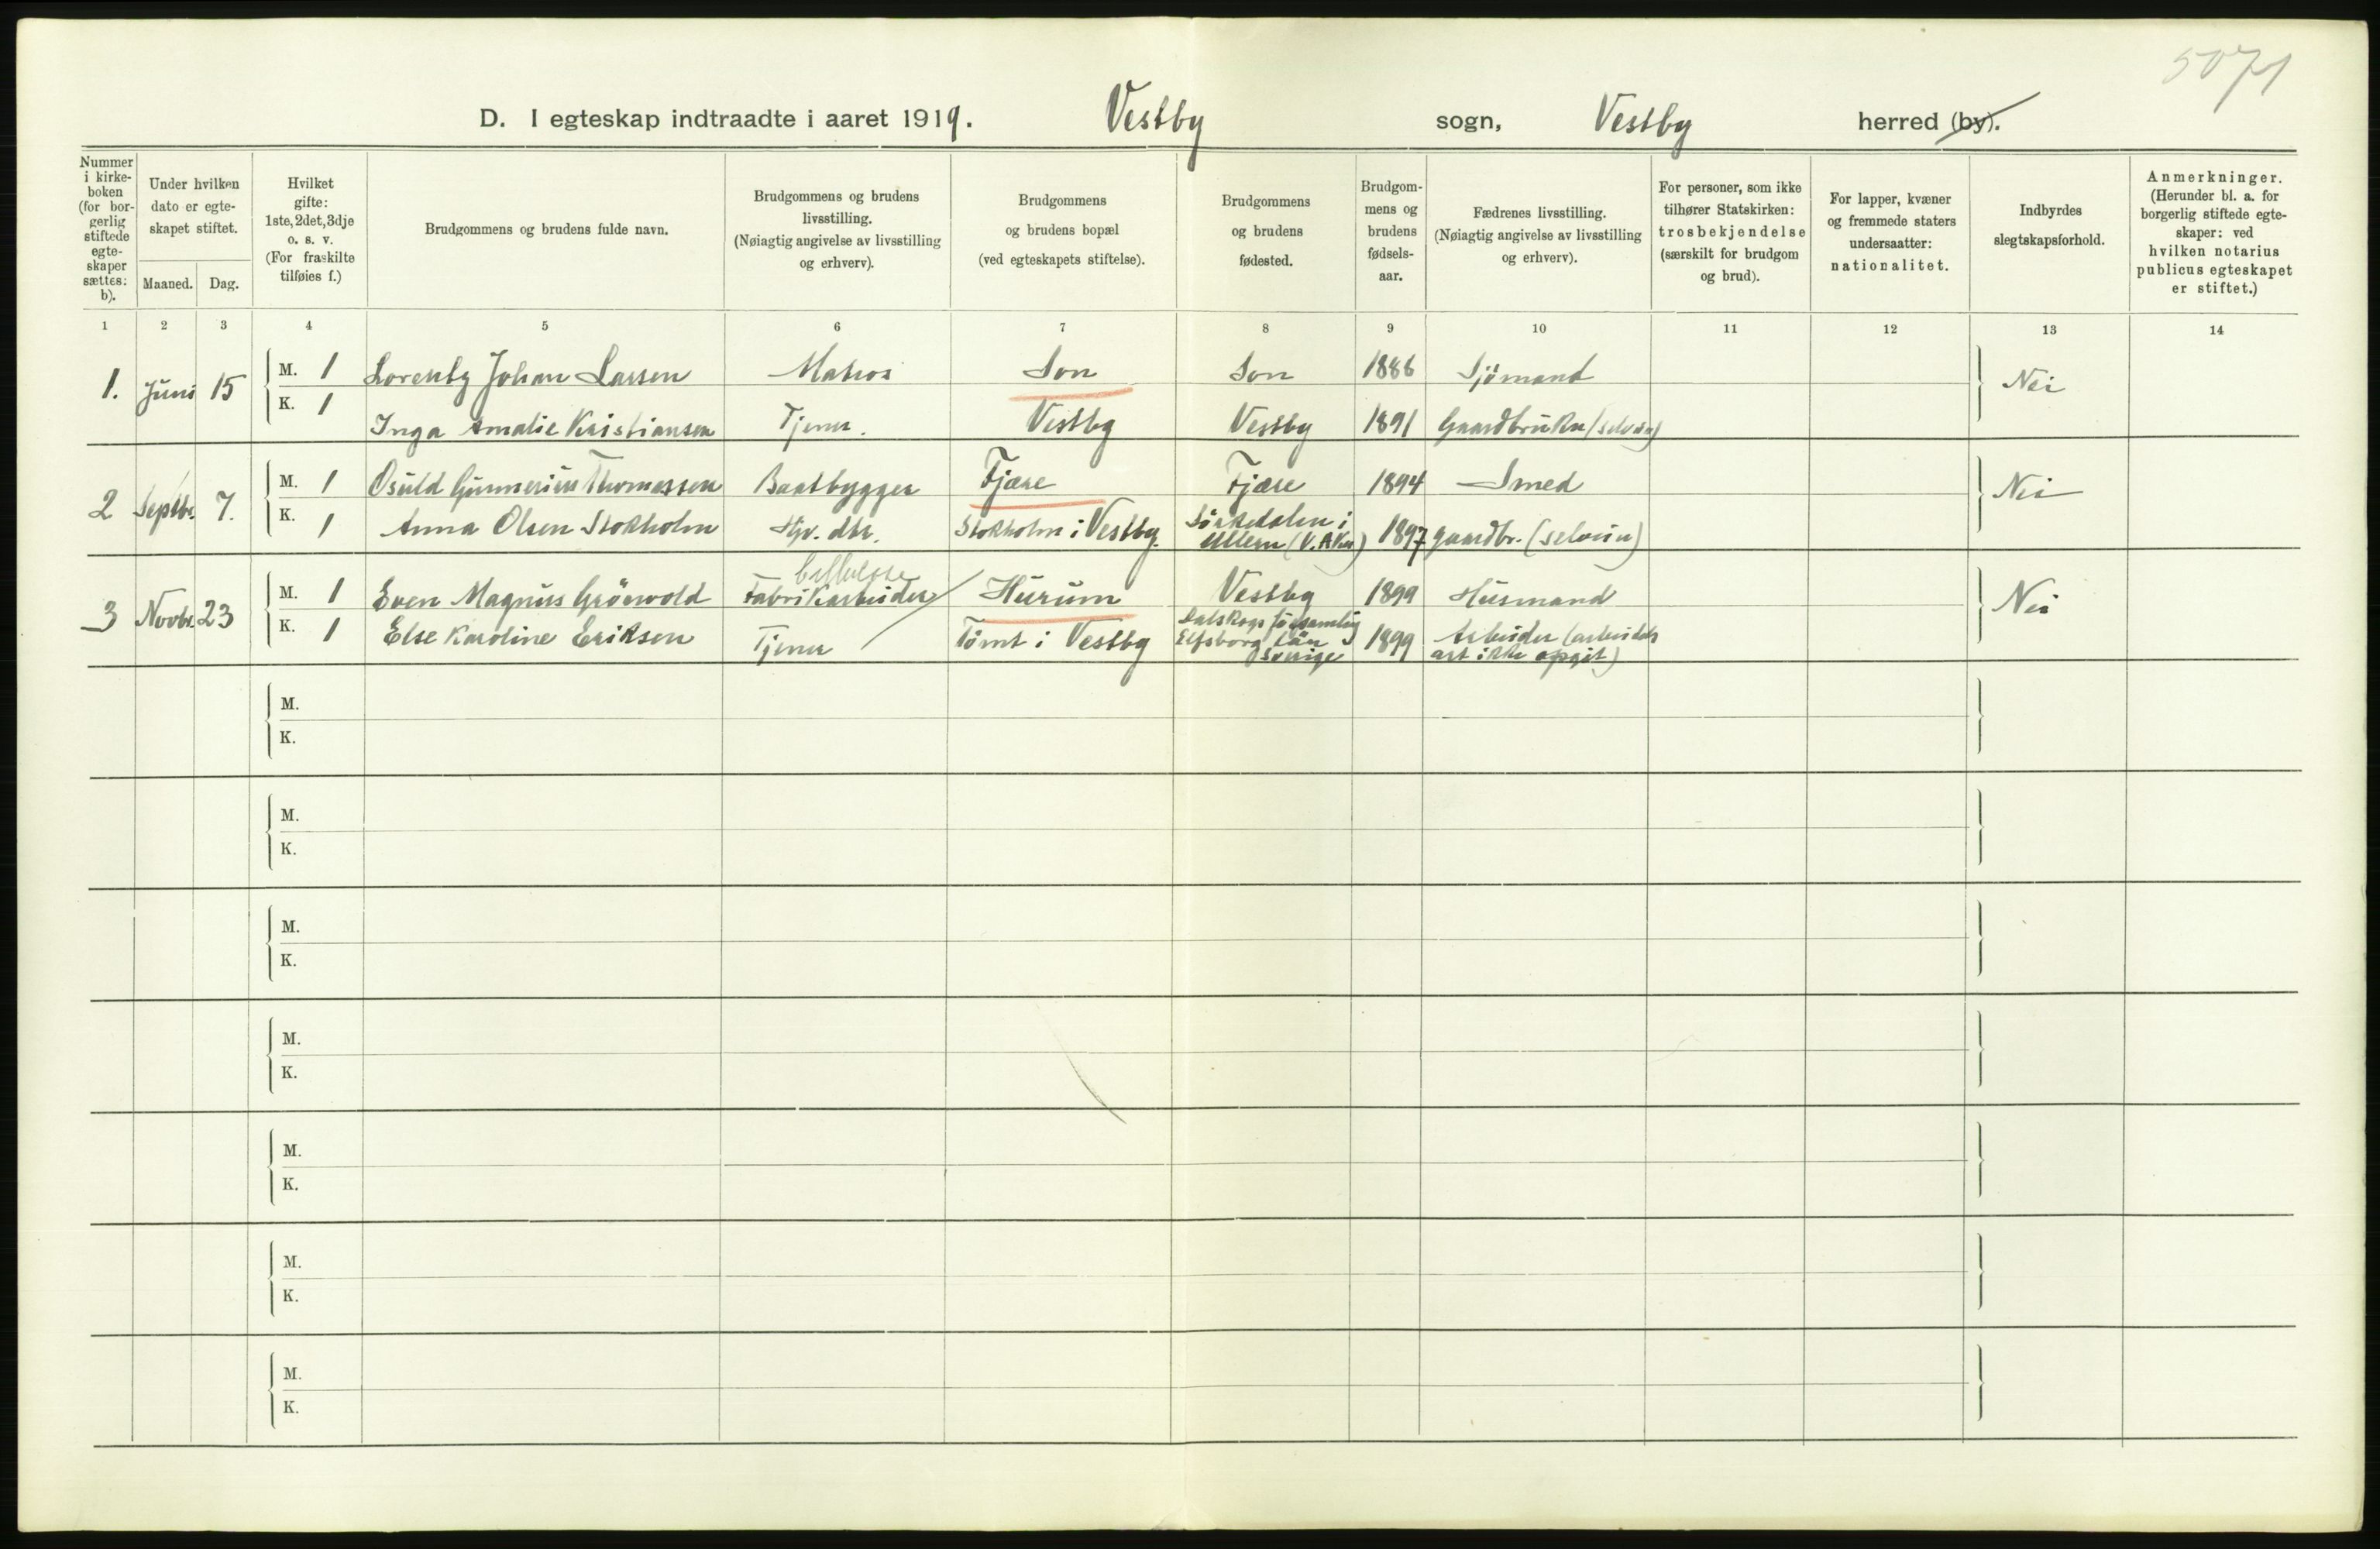 5071
D. I egteskap indtraadte i aaret 1919. Vestby sogn, Vestby herred (by).
Nummer i kirke-boken (for bor-gerlig stiftede egte-skaper sættes: b).
Under hvilken dato er egte-skapet stiftet.
Maaned. Dag.
Hvilket gifte: 1ste, 2det, 3dje o. s. v. (For fraskilte tilføies f.)
Brudgommens og brudens fulde navn.
Brudgommens og brudens livsstilling. (Nøiagtig angivelse av livsstilling og erhverv).
Brudgommens og brudens bopæl (ved egteskapets stiftelse).
Brudgommens og brudens fødested.
Brudgom-mens og brudens fødsels-aar.
Fædrenes livsstilling. (Nøiagtig angivelse av livsstilling og erhverv).
For personer, som ikke tilhører Statskirken: trosbekjendelse (særskilt for brudgom og brud).
For lapper, kvæner og fremmede staters undersaatter: nationalitet.
Indbyrdes slegtskapsforhold.
Anmerkninger. (Herunder bl. a. for borgerlig stiftede egte-skaper: ved hvilken notarius publicus egteskapet er stiftet.)
1 2 3 4 5 6 7 8 9 10 11 12 13 14
1. Juni 15 M. 1 Lorentz Johan Larsen Matros Son Son 1886 Sjömand Nei
K. 1 Inga Amalie Kristiansen Tjener. Vestby Vestby 1891 Gaardbruker (selveier)
2 Septbr. 7. M. 1 Osuld Gunnerius Thomassen Baatbygger Fjære Fjære 1894 Smed Nei
K. 1 Anna Olsen Stokholm Hjv. dtr. Stokholm i Vestby. Sörkedalen i Ullern (V. Aker) 1897 gaardbr. (selveier)
3 Novbr. 23 M. 1 Even Magnus Grönvold Fabrikarbeider cellulose Hurum Vestby 1899 Husmand Nei
K. 1 Else Karoline Eriksen Tjener Tömt i Vestby Dalskogs församling Elfsborg län Sverige 1899 Arbeider (arbeidets art ikke opgit)
M.
K.
M.
K.
M.
K.
M.
K.
M.
K.
M.
K.
M.
K.